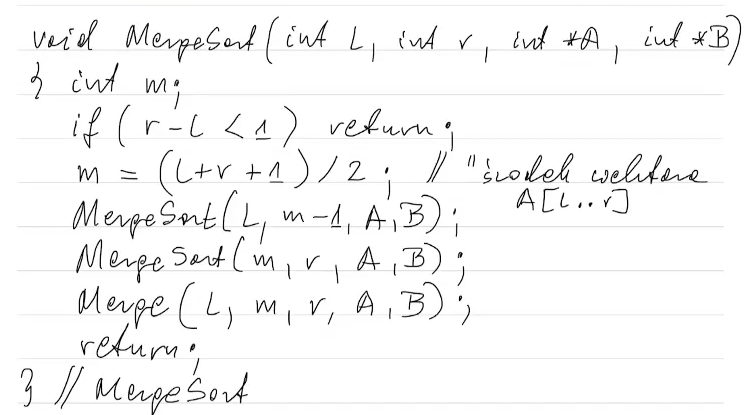 void MergeSort(int L, int r, int *A, int *B)
{ int m;
if (r-L < 1) return;
m = (L+r+1)/2; // "środek wektora
A[L..r]
MergeSort(L, m-1, A, B);
MergeSort(m, r, A, B);
Merge(L, m, r, A, B);
return;
} // MergeSort